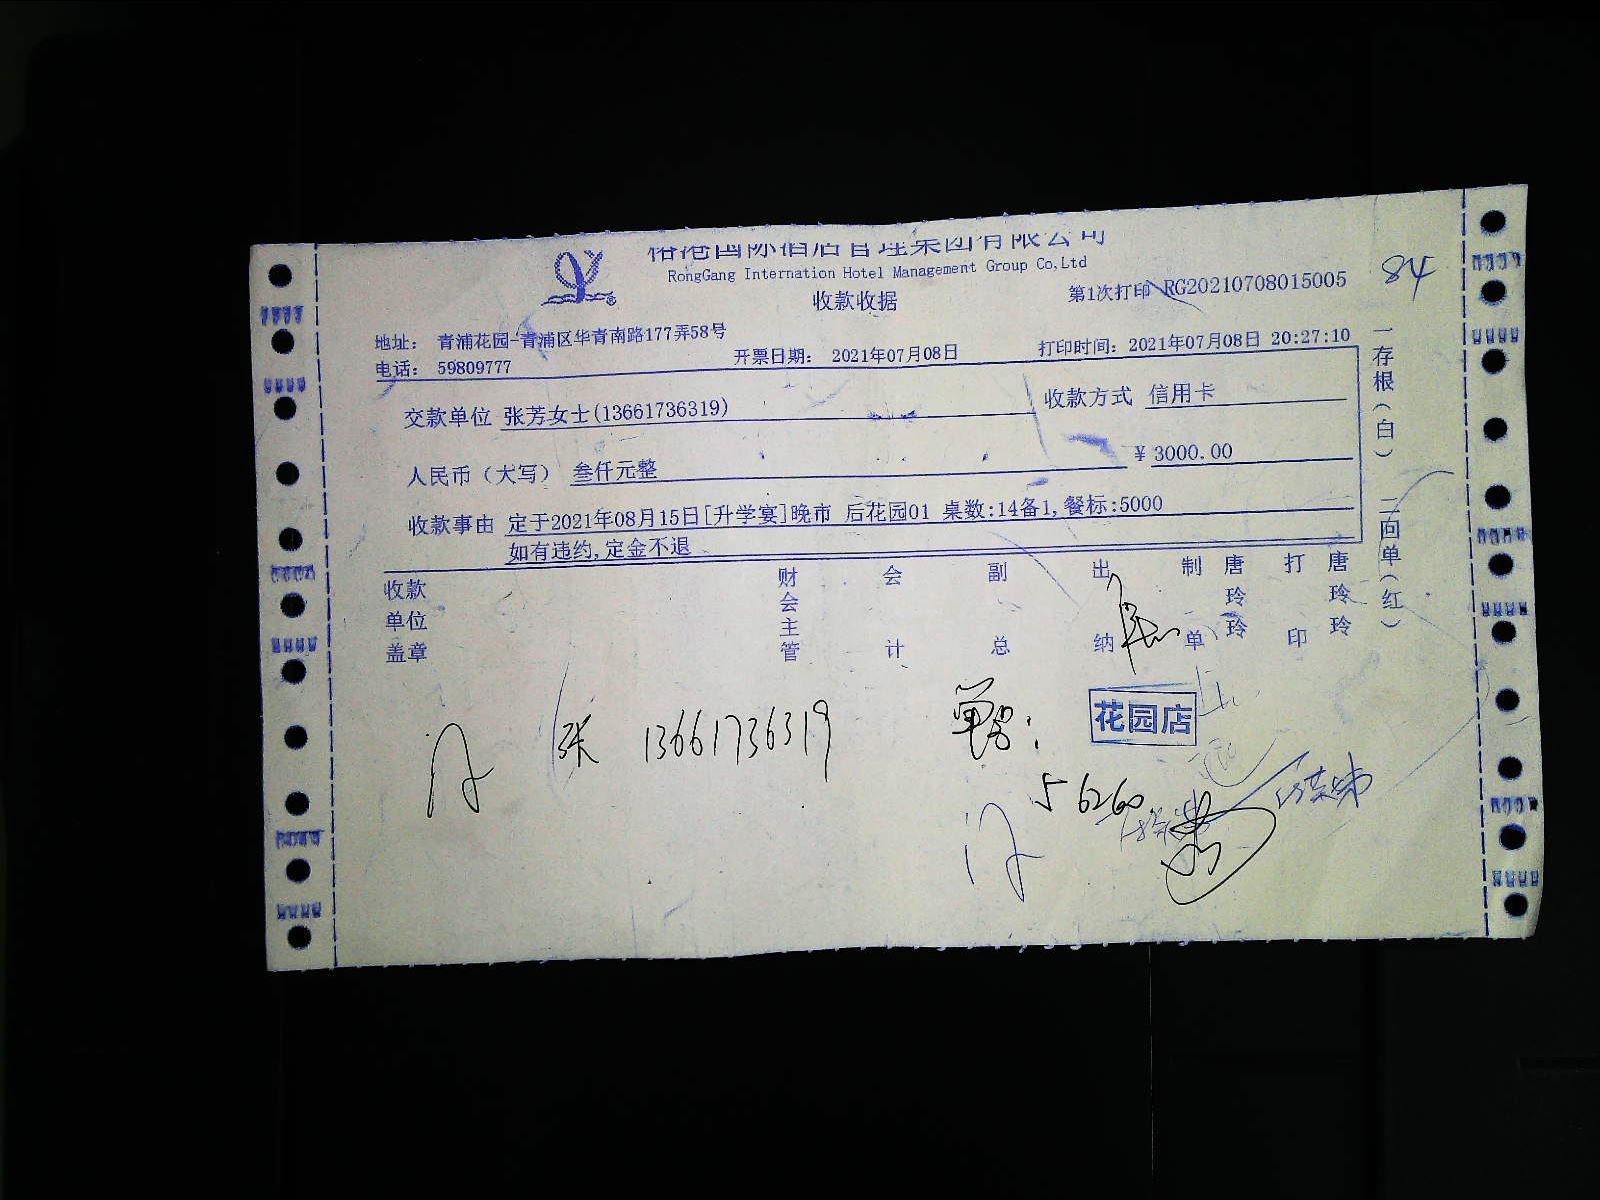 国际酒店管理集团有限公司
RongGang Internation Hotel Management Group Co,Ltd
收款收据
第1次打印 RG20210708015005
84
地址： 青浦花园-青浦区华青南路177弄58号
电话： 59809777
开票日期： 2021年07月08日
打印时间：2021年07月08日 20:27:10
交款单位 张芳女士(13661736319)
收款方式 信用卡
人民币（大写） 叁仟元整
¥ 3000.00
收款事由 定于2021年08月15日[升学宴]晚市 后花园01 桌数:14备1,餐标:5000
如有违约,定金不退
一存根（白） 二回单（红）
收款单位盖章
财会主管
会计
副总
出纳
制单 唐玲玲
打印 唐玲玲
张 13661736319
单号：
花园店
56260